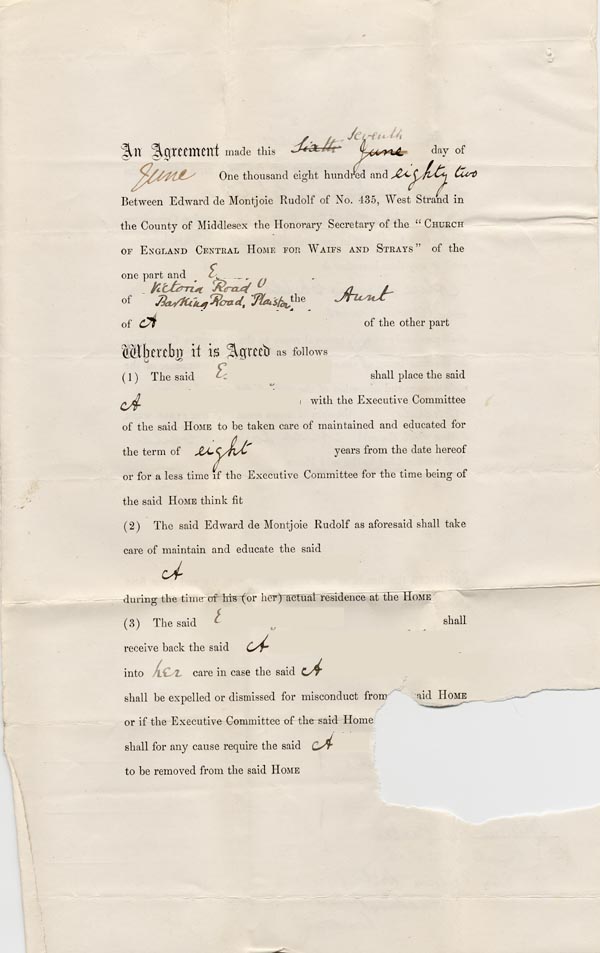 seventh
An Agreement made this Sixth June day of
June One thousand eight hundred and eighty two
Between Edward de Montjoie Rudolf of No. 435, West Strand in
the County of Middlesex the Honorary Secretary of the "CHURCH
OF ENGLAND CENTRAL HOME FOR WAIFS AND STRAYS" of the
one part and E.
Victoria Road
of Barking Road, Plaistow, the Aunt
of A of the other part
Whereby it is Agreed as follows
(1) The said E. shall place the said
A with the Executive Committee
of the said HOME to be taken care of maintained and educated for
the term of eight years from the date hereof
or for a less time if the Executive Committee for the time being of
the said HOME think fit
(2) The said Edward de Montjoie Rudolf as aforesaid shall take
care of maintain and educate the said
A
during the time of his (or her) actual residence at the HOME
(3) The said E shall
receive back the said A
into her care in case the said A
shall be expelled or dismissed for misconduct from aid HOME
or if the Executive Committee of the said Home
shall for any cause require the said A
to be removed from the said HOME